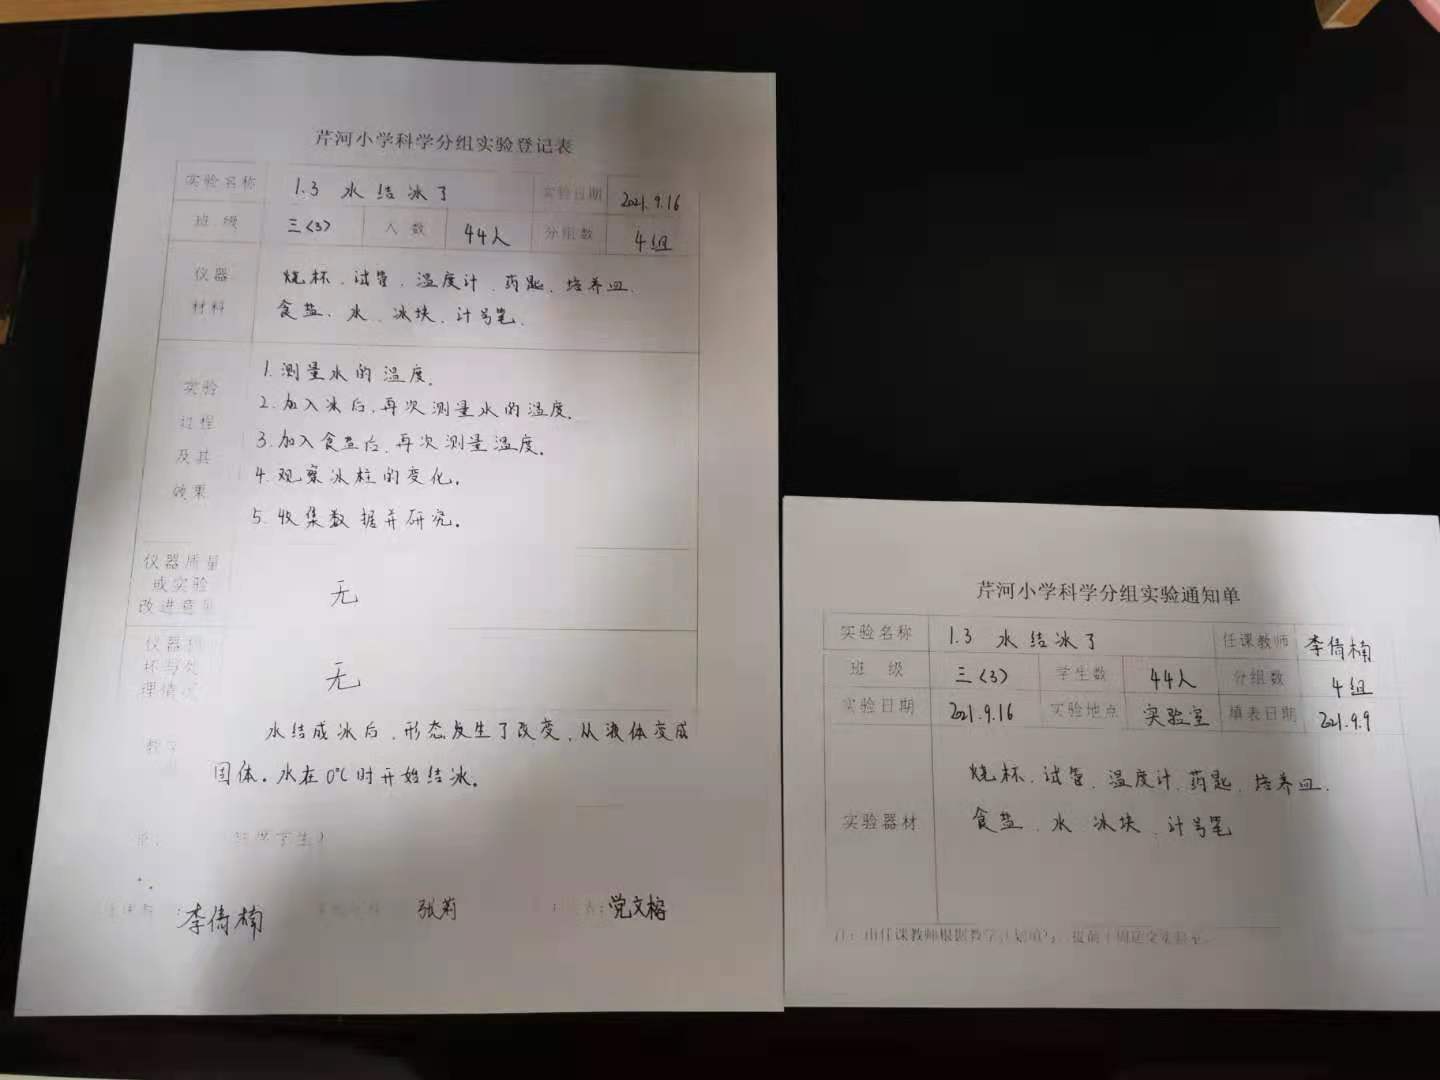 芹河小学科学分组实验登记表
实验名称 1.3 水结冰了 实验日期 2021.9.16
班级 三(3) 人数 44人 分组数 4组
仪器 烧杯、试管、温度计、药匙、培养皿、
材料 食盐、水、冰块、计号笔.
实验
过程
及其
效果
1.测量水的温度.
2.加入冰后,再次测量水的温度.
3.加入食盐后,再次测量温度.
4.观察冰柱的变化.
5.收集数据并研究.
仪器质量
或实验
改进意见
无
仪器损
坏与处
理情况
无
水结成冰后,形态发生了改变,从液体变成
固体.水在0℃时开始结冰.
李倩楠 张莉 党文榕
芹河小学科学分组实验通知单
实验名称 1.3 水结冰了 任课教师 李倩楠
班级 三(3) 学生数 44人 分组数 4组
实验日期 2021.9.16 实验地点 实验室 填表日期 2021.9.9
烧杯、试管、温度计、药匙、培养皿、
实验器材 食盐、水 冰块、计号笔
注:由任课教师根据教学计划填写,提前1周送交实验室。